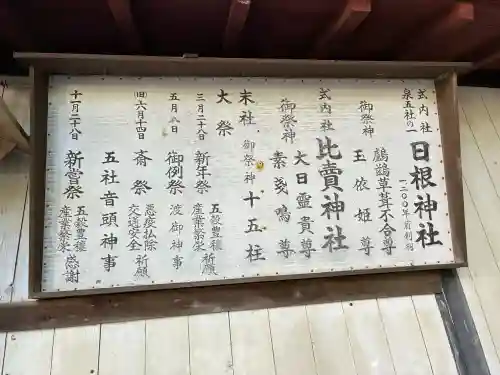 式内社
泉五社の一
日根神社
一二〇〇年前創祀
御祭神
鸕鷀草葺不合尊
玉依姫尊
式内社
比賣神社
御祭神
大日霊貴尊
素戔嗚尊
末社
御祭神
十五柱
大祭
三月二十八日
新年祭
五穀豊穣
産業繁栄
祈願
五月五日
御例祭
渡御神事
旧六月十四日
斎祭
悪疫払除
交通安全
祈願
五社音頭神事
十一月二十八日
新嘗祭
五穀豊穣
産業繁栄
感謝